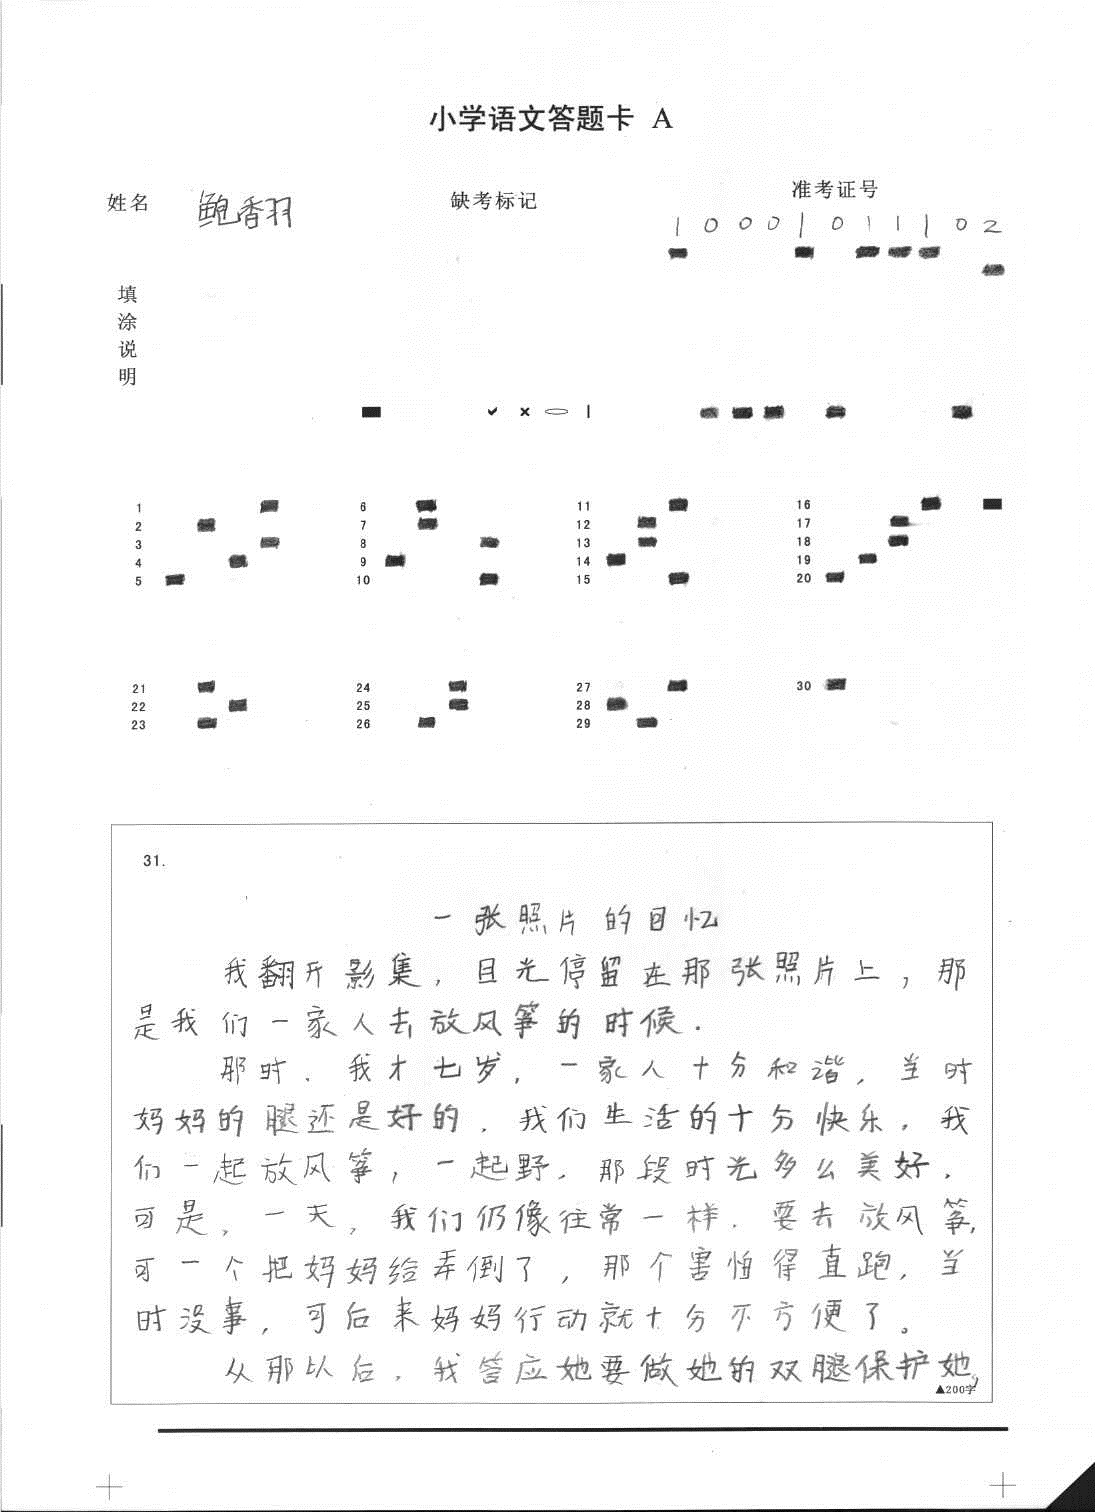 小学语文答题卡 A
姓名 鲍香羽 缺考标记 准考证号
1 0 0 0 1 0 1 1 1 0 2
填
涂
说
明
1 6 11 16
2 7 12 17
3 8 13 18
4 9 14 19
5 10 15 20
21 24 27 30
22 25 28
23 26 29
31.
一张照片的回忆
我翻开影集，目光停留在那张照片上，那
是我们一家人去放风筝的时候.
那时.我才七岁，一家人十分和谐，当时
妈妈的腿还是好的.我们生活的十分快乐.我
们一起放风筝，一起野.那段时光多么美好.
可是，一天，我们仍像往常一样.要去放风筝,
可一个把妈妈给弄倒了，那个害怕得直跑.当
时没事，可后来妈妈行动就十分不方便了。
从那以后.我答应她要做她的双腿保护她,
▲200字